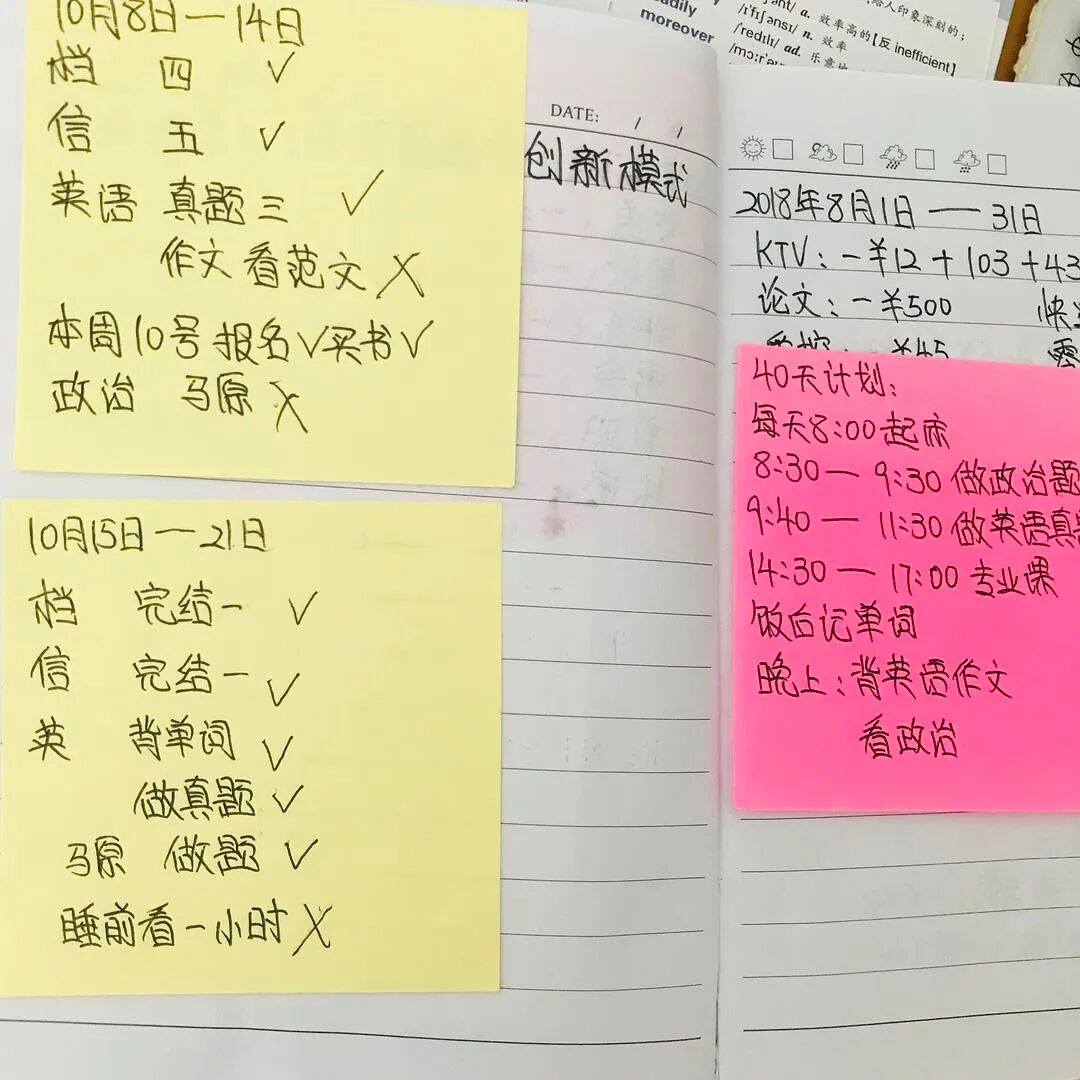 10月8日—14日
档 四 ✓
信 五 ✓
英语 真题三 ✓
作文看范文 ✗
本周10号报名✓买书✓
政治 马原 ✗
10月15日—21日
档 完结一 ✓
信 完结一 ✓
英 背单词 ✓
做真题 ✓
马原 做题 ✓
睡前看一小时 ✗
DATE: / /
创新模式
moreover
效率高的【反 inefficient】
/ɪˈfɪʃənsɪ/ n. 效率
/ˈredɪlɪ/ ad.
2018年8月1日—31日
KTV:-¥12+103+43
论文:-¥500
-¥45
40天计划:
每天8:00起床
8:30— 9:30做政治题
9:40— 11:30做英语真题
14:30—17:00专业课
饭后记单词
晚上:背英语作文
看政治